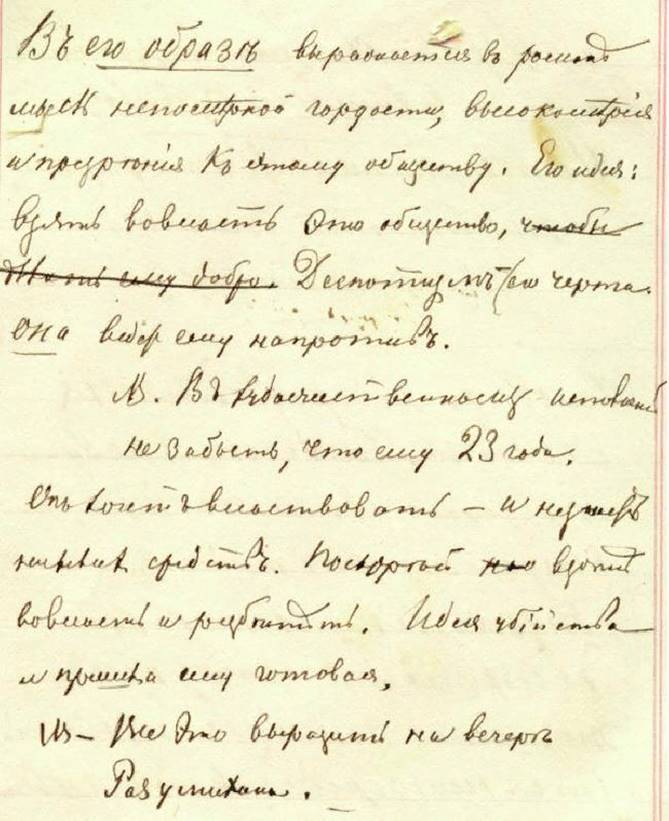 Въ его образѣ выражается въ романѣ
мысль непомѣрной гордости, высокомѣрія
и презрѣнія къ этому обществу. Его идея:
взять во власть это общество, чтобы
дѣлать ему добро. Деспотизмъ его черта.
Она ведетъ ему напротивъ.
NB. Въ художественномъ исполненіи
не забыть, что ему 23 года.
Онъ хочетъ властвовать – и не знаетъ
никакихъ средствъ. Поскорѣй взять
во власть и разбогатѣть. Идея убійства
и пришла ему готовая.
NB – Все это выразить на вечерѣ
Разумихина.